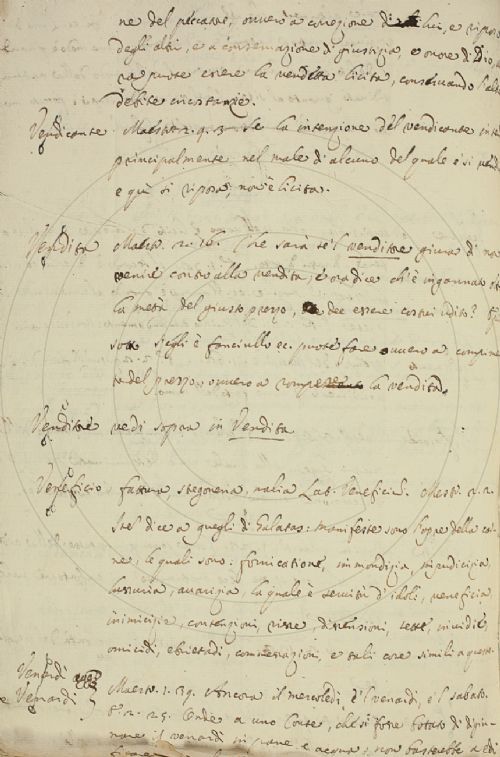 ne del peccante, ovvero a correzione di, e riposo
degli altri, e a conservazione di giustizia, e onore di Dio,
puote essere la vendetta licita, conservando l'altre
debite circostanze.
Vendicante Maestr. 2. 9. 3. Se la intenzione del vendicante
principalmente nel male d'alcuno del quale e' si
e qui si riposa, non è licita.
Vendita Maestr. 2. 16. Che sarà se 'l venditore giura di non
venire contro alla vendita, e ora dice ch'è ingannato
la metà del giusto prezzo, dee essere costui udito?
s'egli è fanciullo ec. puote fare ovvero a
del prezzo, ovvero a rompere la vendita.
Venditore vedi sopra in Vendita
Veneficio, fattura stregoneria, malia Lat. Veneficium. Maestr. 2.
dice a quegli di Galatas: manifeste sono l'opre della car-
ne, le quali sono: fornicazione, immondizia, impudicizia,
lussuria, avarizia, la quale è servitù d'idoli, veneficia,
inimicizie, contenzioni, risse, dissensioni, sette, invidie,
omicidi, ebrietadi, commessazioni, e tali cose simili a queste.
Venerdì
e Venardi Maestr. 1. 39. Ancora il mercoledì, e 'l venardi, e 'l sabato.
2. 25. Onde a uno Conte, che si fosse botato di digiu-
nare il venardi in pane e acqua, non basterebbe a